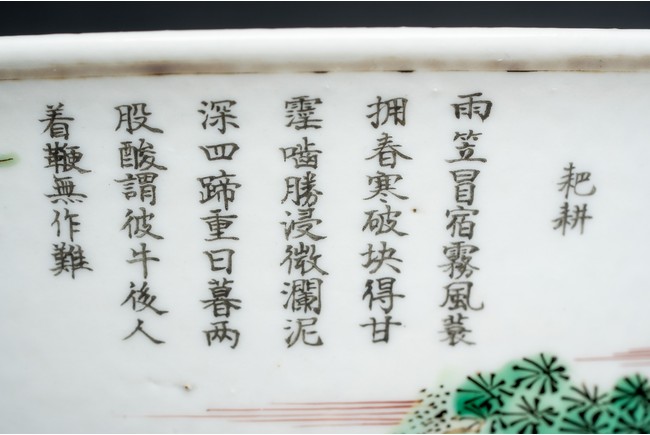 耙耕
雨笠冒宿霧風蓑
拥春寒破块得甘
霔嚙勝浸微瀾泥
深四蹄重日暮两
股酸謂彼牛後人
着鞭無作難